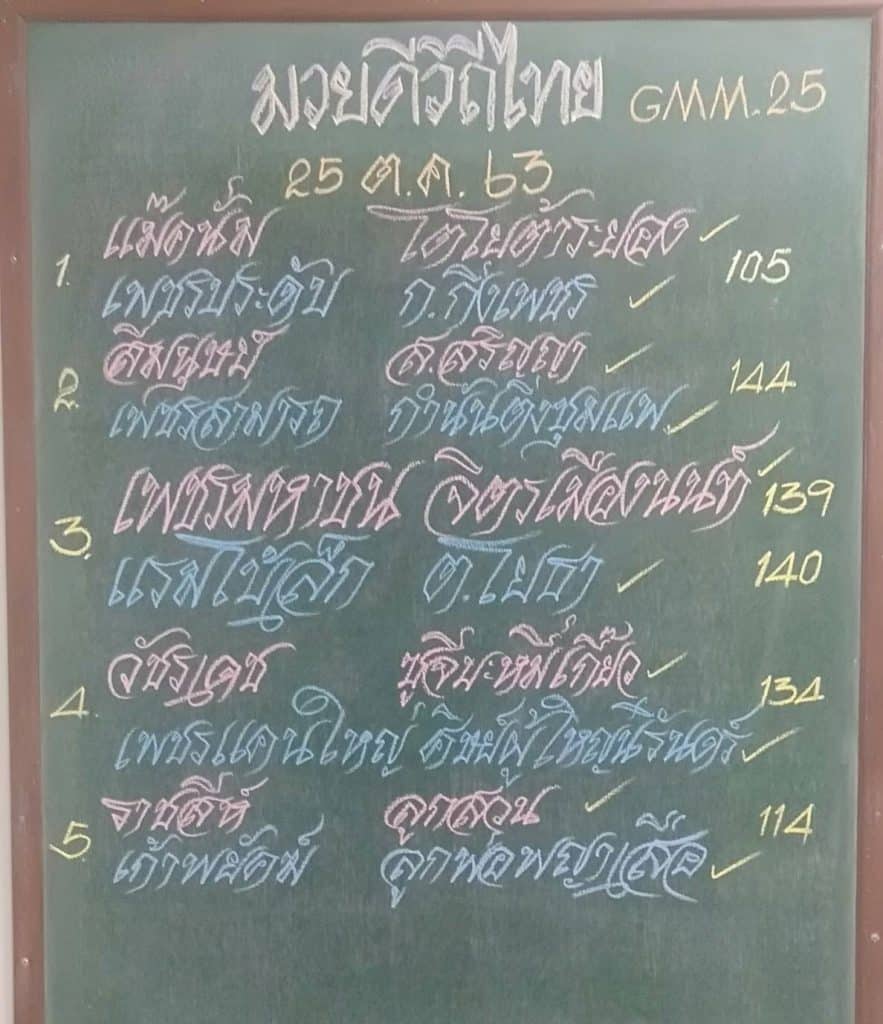 มวยดีวิถีไทย GMM.25
25 ต.ค. 63
1. แม๊คนั่ม โตโยต้าระยอง ✓ 105
เพชรประดับ ก.กิ่งเพชร ✓
2. สีมนุษย์ ส.สริญญา ✓ 144
เพชรสามารถ กำนันติ่งชุมแพ ✓
3. เพชรมหาชน จิตรเมืองนนท์ ✓ 139
แรมโบ้เล็ก ต.โยธา ✓ 140
4. วัชรเดช ซูจีบะหมี่เกี๊ยว ✓ 134
เพชรแดนใหญ่ ศิษย์ผู้ใหญ่นิรันดร์ ✓
5. ราชสีห์ ลูกสวน ✓ 114
เก้าพยัคฆ์ ลูกพ่อพญาเสือ ✓